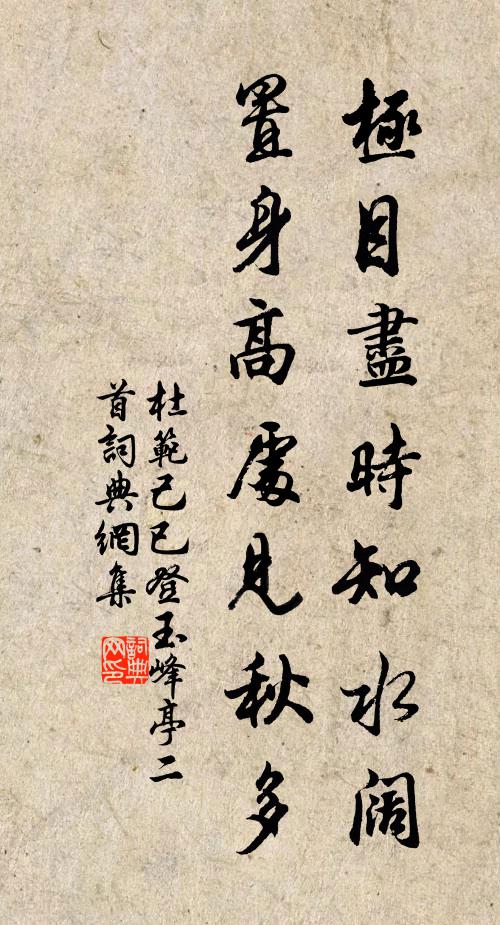 極目盡時知水闊
置身高處見秋多
杜範己巳登玉峰亭二
首詞典網集
詞典網印